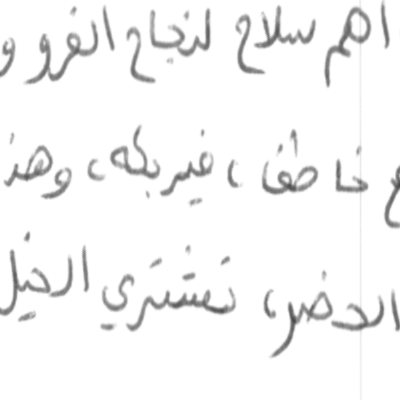 اهم سلاح لنجاح الغزو و
ع خاطفا، فيربكه، وهذ
الحضر، تشتري الخيل